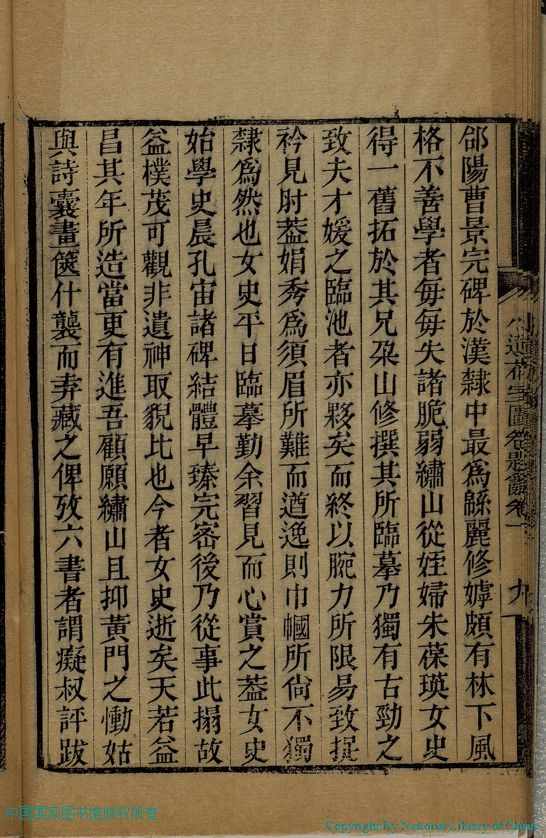 郃陽曹景完碑於漢隸中最爲緜麗修嫭頗有林下風
格不善學者每每失諸脆弱繡山從姪婦朱葆瑛女史
得一舊拓於其兄朶山修撰其所臨摹乃獨有古勁之
致夫才媛之臨池者亦夥矣而終以腕力所限易致捉
衿見肘葢娟秀爲須眉所難而遒逸則巾幗所尙不獨
隸爲然也女史平日臨摹勤余習見而心賞之葢女史
始學史晨孔宙諸碑結體早臻完密後乃從事此搨故
益樸茂可觀非遺神取貌比也今者女史逝矣天若益
昌其年所造當更有進吾顧願繡山且抑黃門之慟姑
與詩囊畫篋什襲而弆藏之俾攷六書者謂癡叔評跋
圖卷題辭卷一
九
中国国家图书馆版权所有
Copyright By National Library of China